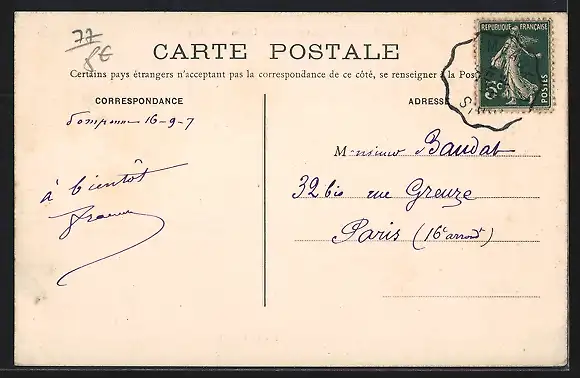 77
8€
CARTE POSTALE
Certains pays étrangers n'acceptant pas la correspondance de ce côté, se renseigner à la Post
CORRESPONDANCE
ADRESSE
RÉPUBLIQUE FRANÇAISE
POSTES
5c
16-9-7
à bientôt
Monsieur Baudat
32 bis rue Greuze
Paris (16e arrondt)